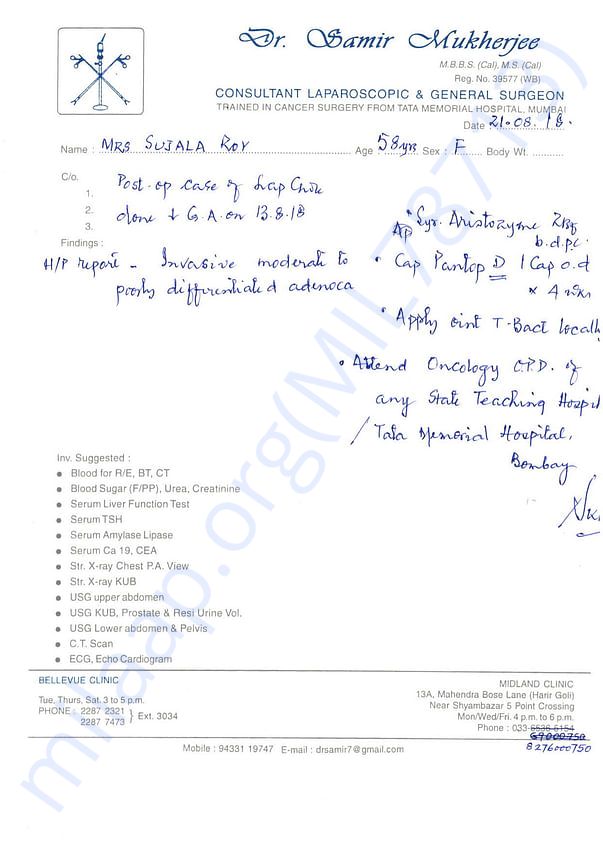 Dr. Samir Mukherjee
M.B.B.S. (Cal), M.S. (Cal)
Reg. No. 39577 (WB)
CONSULTANT LAPAROSCOPIC & GENERAL SURGEON
TRAINED IN CANCER SURGERY FROM TATA MEMORIAL HOSPITAL, MUMBAI
Date 21.08.18.
Name : MRS SUJALA ROY Age 58yrs Sex : F Body Wt.
C/o.
1. Post-op case of Lap Chole
2. done ↓ G.A. on 13.8.18
3.
Findings :
H/P report - Invasive moderate to
poorly differentiated adenoca
Syr. Aristozyme
b.d.p.c.
• Cap Pantop D 1 Cap o.d
x 4 wks
• Apply oint T-Bact locally
• Attend Oncology O.P.D. of
any State Teaching Hospit
/ Tata Memorial Hospital,
Bombay
Inv. Suggested :
• Blood for R/E, BT, CT
• Blood Sugar (F/PP), Urea, Creatinine
• Serum Liver Function Test
• Serum TSH
• Serum Amylase Lipase
• Serum Ca 19, CEA
• Str. X-ray Chest P.A. View
• Str. X-ray KUB
• USG upper abdomen
• USG KUB, Prostate & Resi Urine Vol.
• USG Lower abdomen & Pelvis
• C.T. Scan
• ECG, Echo Cardiogram
BELLEVUE CLINIC
Tue, Thurs, Sat. 3 to 5 p.m.
PHONE : 2287 2321
2287 7473 } Ext. 3034
MIDLAND CLINIC
13A, Mahendra Bose Lane (Harir Goli)
Near Shyambazar 5 Point Crossing
Mon/Wed/Fri. 4 p.m. to 6 p.m.
Phone : 033-6536-5154
8276000750
Mobile : 94331 19747 E-mail : drsamir7@gmail.com
milaap.org(MIL78713)